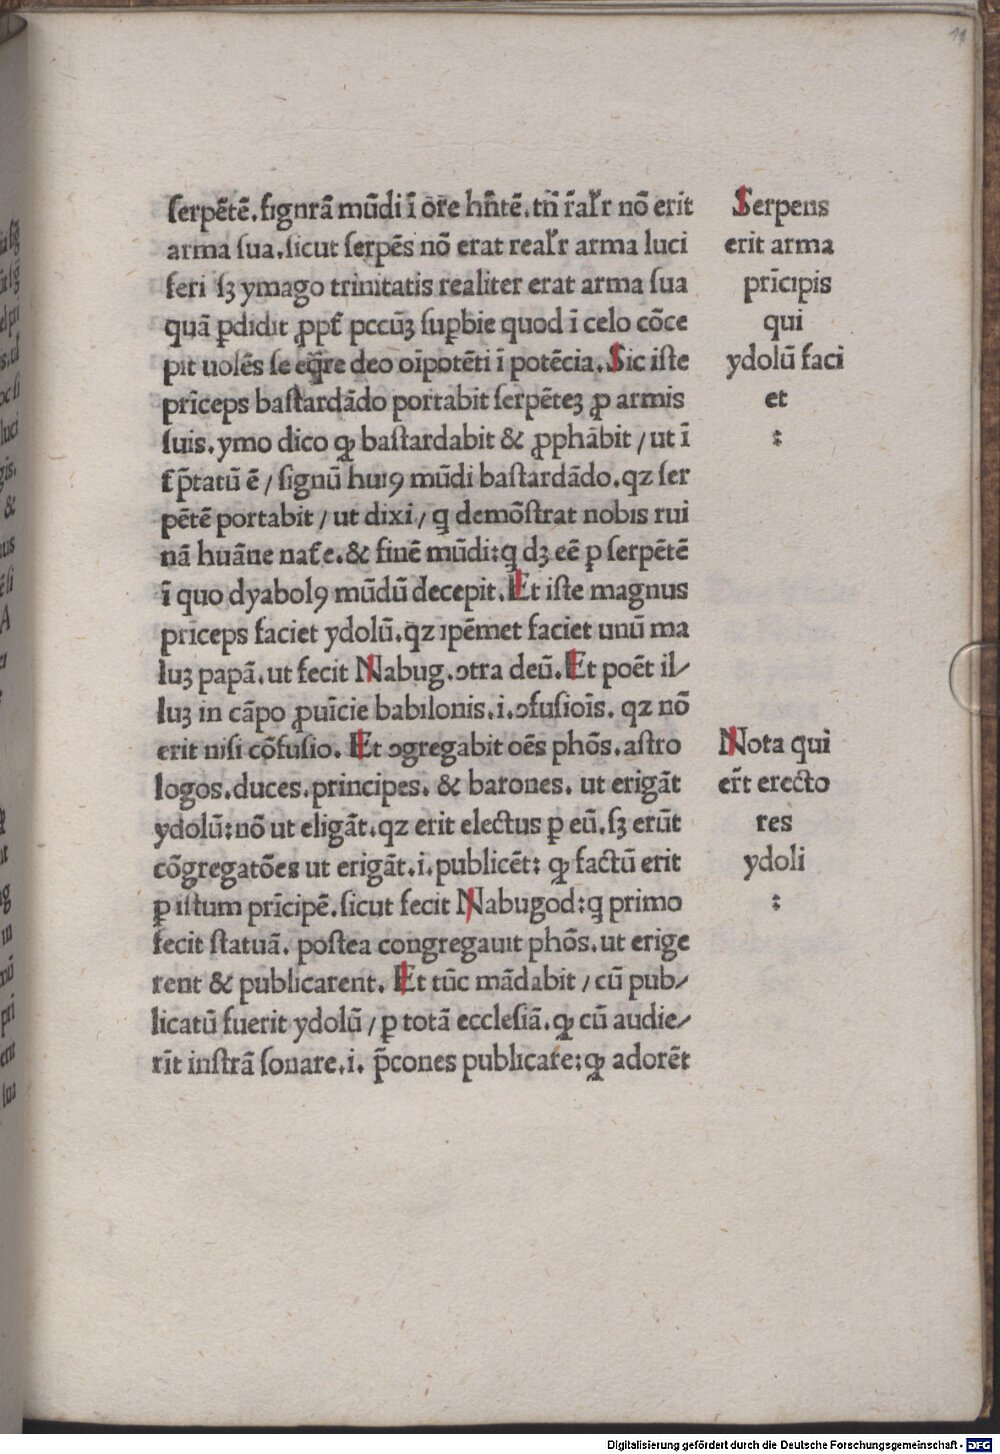 11
serpētē. fignrā mūdi ī ore hn̄tē. tn̄ r̄alr̄ nō erit
arma sua. sicut serpēs nō erat realr̄ arma luci
feri sꝫ ymago trinitatis realiter erat arma sua
quā ꝑdidit ꝓpt̄ pccūꝫ supbie quod ī celo cōce
pit uolēs se eq̄re deo oīpotēti ī potēcia. Sic iste
prīceps bastardādo portabit serpēteꝫ ꝓ armis
suis. ymo dico ꝙ bastardabit & ꝓphābit / ut ī
t̄ p̄tatū ē / signū huiꝯ mūdi bastardādo. qz ser
pētē portabit / ut dixi / q demōstrat nobis rui
nā huāne nat̄e. & finē mūdi: q dꝫ eē ꝑ serpētē
ī quo dyabolꝯ mūdū decepit. Et iste magnus
priceps faciet ydolū. qz ipēmet faciet unū ma
luꝫ papā. ut fecit Nabug. ɔtra deū. Et poēt il⸗
luꝫ in cāpo ꝓuīcie babilonis. i. ɔfusioīs. qz nō
erit nisi cōfusio. Et ɔgregabit oēs phōs. astro
logos. duces. principes. & barones. ut erigāt
ydolū: nō ut eligāt. qz erit electus ꝑ eū. sꝫ erūt
cōgregatōes ut erigāt. i. publicēt: ꝙ factū erit
ꝑ istum prīcipē. sicut fecit Nabugod: q primo
fecit statuā. postea congregauit phōs. ut erige
rent & publicarent. Et tūc mādabit / cū pub⸗
licatū fuerit ydolū / ꝑ totā ecclesiā. ꝙ cū audie⸗
rīt instrā sonare. i. p̄cones publicare: ꝙ adorēt
Serpens
erit arma
prīcipis
qui
ydolū faci
et
:
Nota qui
er̄t erecto
res
ydoli
:
Digitalisierung gefördert durch die Deutsche Forschungsgemeinschaft - DFG